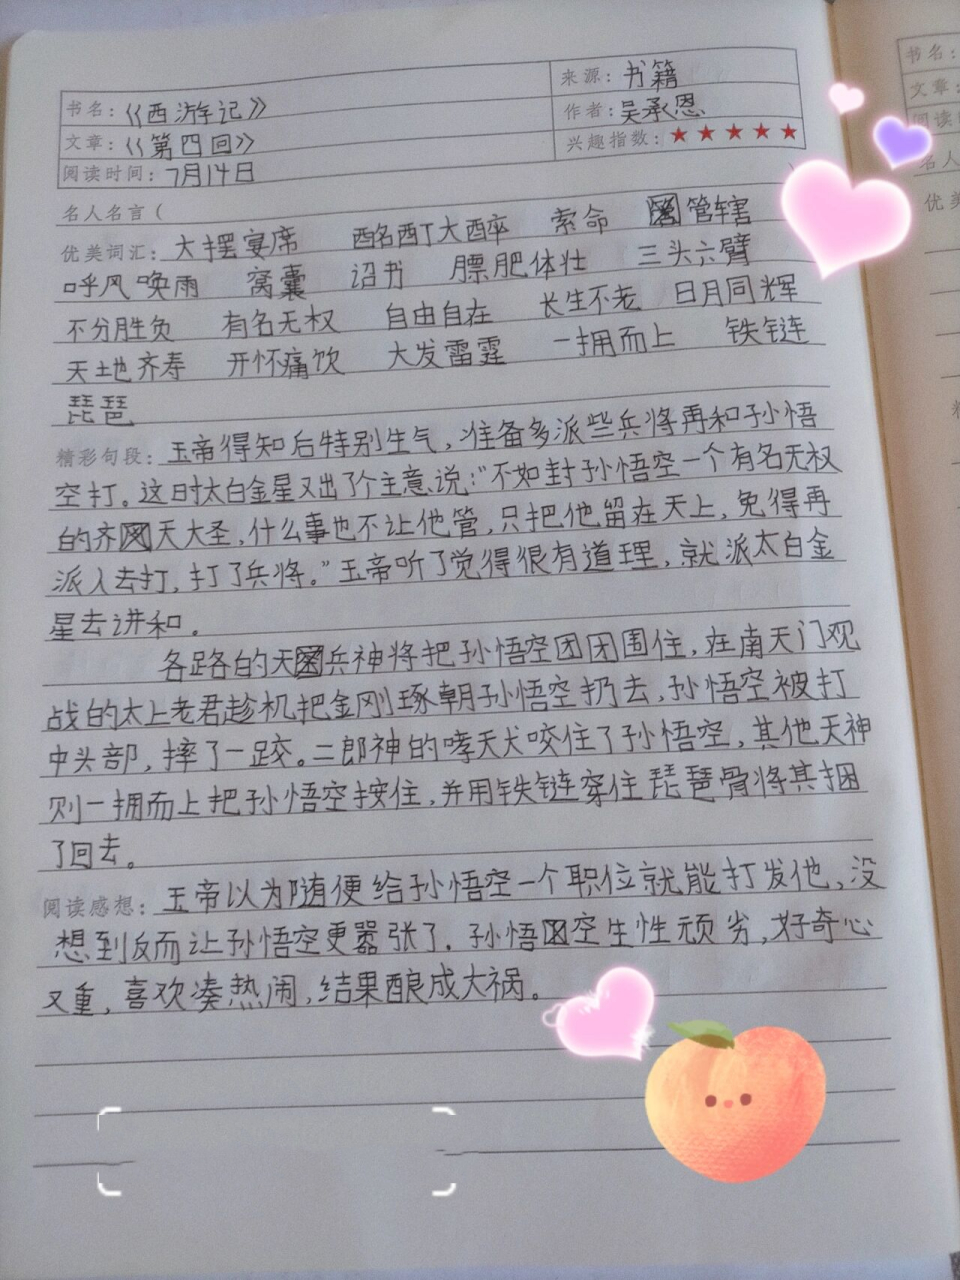 书名：《西游记》 来源：书籍
文章：《第四回》 作者：吴承恩
阅读时间：7月14日 兴趣指数：★★★★★
名人名言（ ）
优美词汇：大摆宴席 酩酊大醉 索命 管辖
呼风唤雨 窝囊 诏书 膘肥体壮 三头六臂
不分胜负 有名无权 自由自在 长生不老 日月同辉
天地齐寿 开怀痛饮 大发雷霆 一拥而上 铁链
琵琶
精彩句段：玉帝得知后特别生气，准备多派些兵将再和孙悟
空打。这时太白金星又出了个主意说："不如封孙悟空一个有名无权
的齐天大圣，什么事也不让他管，只把他留在天上，免得再
派人去打，打了兵将。"玉帝听了觉得很有道理，就派太白金
星去讲和。
各路的天兵神将把孙悟空团团围住，在南天门观
战的太上老君趁机把金刚琢朝孙悟空扔去，孙悟空被打
中头部，摔了一跤。二郎神的哮天犬咬住了孙悟空，其他天神
则一拥而上把孙悟空按住，并用铁链穿住琵琶骨将其捆
了回去。
阅读感想：玉帝以为随便给孙悟空一个职位就能打发他，没
想到反而让孙悟空更嚣张了。孙悟空生性顽劣，好奇心
又重，喜欢凑热闹，结果酿成大祸。
书名：
文章：
阅读
名人
优美